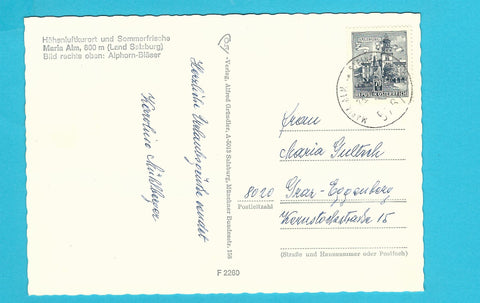 Höhenluftkurort und Sommerfrische
Maria Alm, 800 m (Land Salzburg)
Bild rechts oben: Alphorn-Bläser
Herzliche Urlaubsgrüße sendet
Karoline
Cosy-Verlag, Alfred Gründler, A-5013 Salzburg, Münchner Bundesstr. 158
F 2260
REPUBLIK ÖSTERREICH
MARIA ALM
Frau
Maria Gultsch
8020 Graz-Eggenberg
Postleitzahl
Kernstockstraße 15
(Straße und Hausnummer oder Postfach)